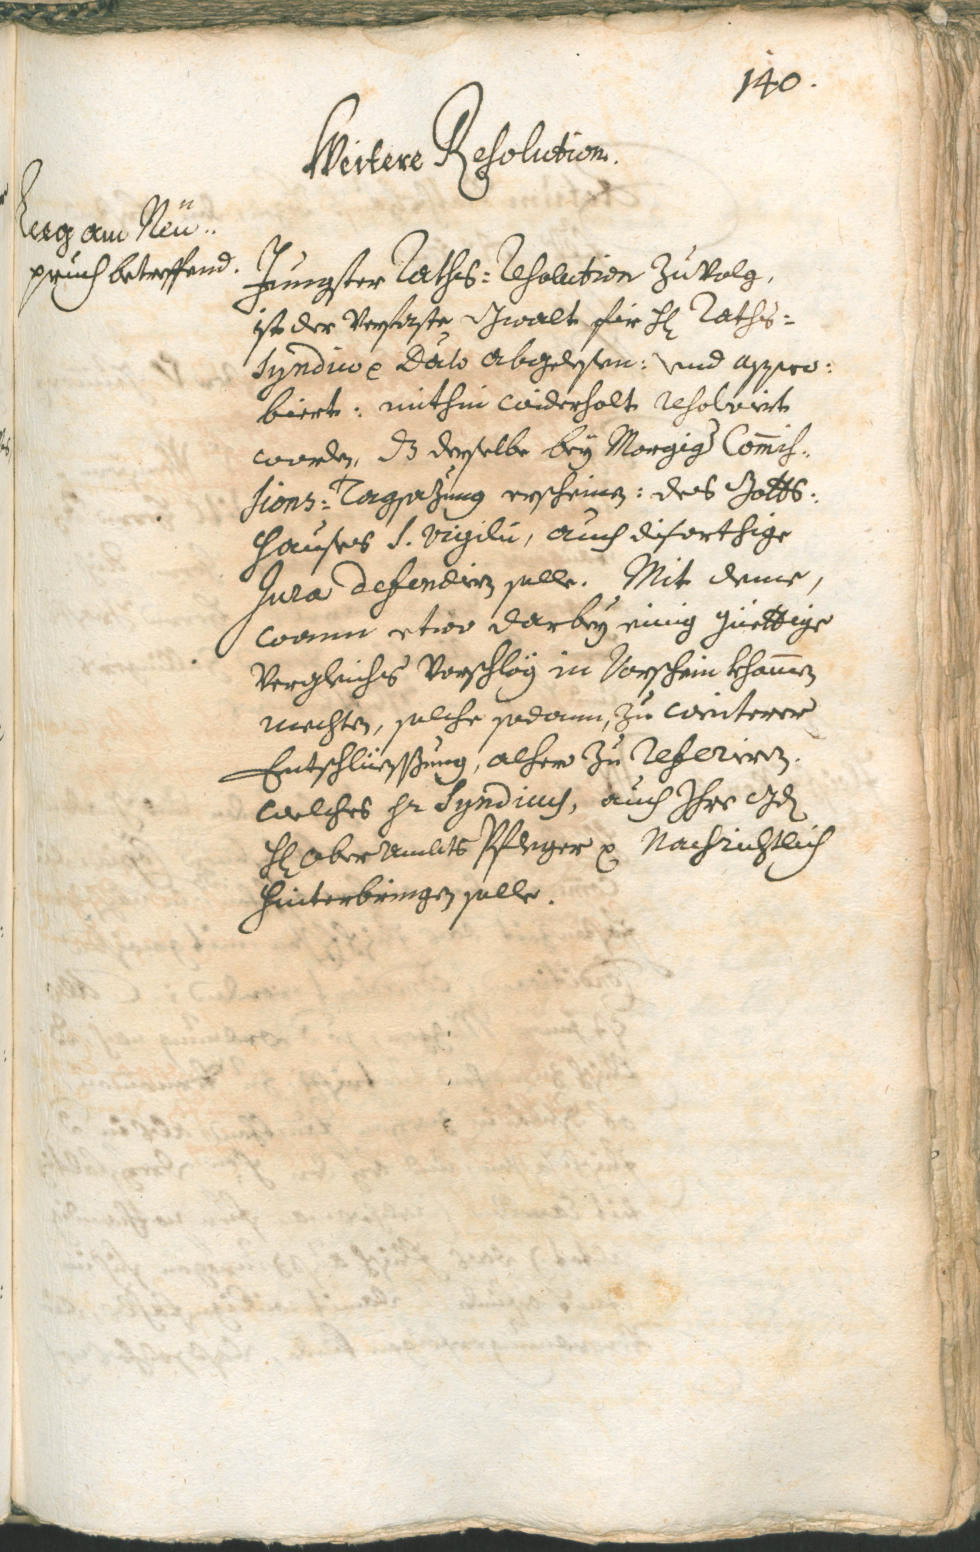 140.
Weitere Resolution.
am Neü„
pruch betreffend.
Jungster Raths-Resolution zu volg,
ist der verfaste Gwalt für H. Raths-
Syndico dato abgelesen: und appro:
biert: mithin widerholt resolviert
worden, dz derselbe bey Morgig Com̄is:
sions-Tagsazung erscheinen: des Gotts:
hauses S. Vigilii, auch disorthige
Jura defendiren solle. Mit deme,
wann etwo darbey einig güettige
Vergleichs Vorschläg in Vorschein kham̄en
mechten, solche sodann, zu weiterer
Entschlüessung, alhero zu referiren.
welches Hr Syndicus, auch Ihro Gd
H. ober Ambts Pfleger Nachrichtlich
hinterbringen solle.